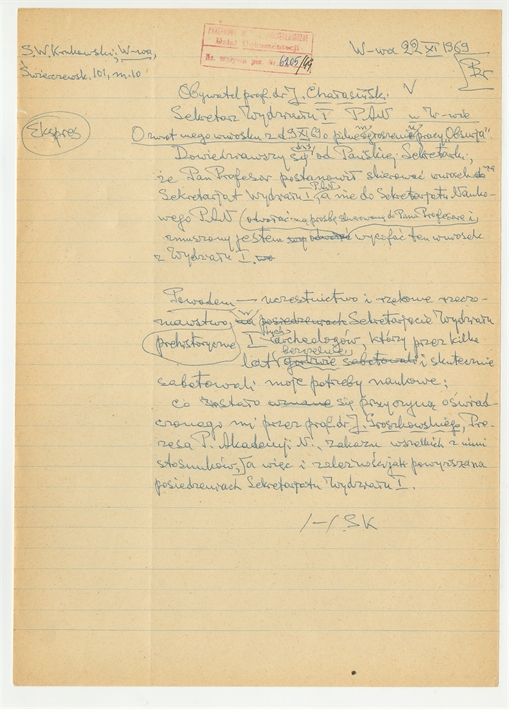 S.W. Krukowski, W-wa,
Świerczewsk. 101, m. 10
W-wa 22 XI 1969
Br
Ekspres
Obywatel prof. dr J. Chałasińsk.
V
Sekretarz Wydziału I PAN w W-wie
O zwrot mego wniosku z d. 9 XI 69 o pilne
Dowiedziawszy się dziś od Pańskiej Sekretarki,
że Pan Profesor postanowił skierować wniosek do
Sekretariat Wydziału I PAN, a nie do Sekretariatu Nauko-
wego PAN (odwrócić mą prośbę skierowaną do Pana Profesora),
zmuszony jestem wycofać ten wniosek
z Wydziału I.
Powodem — uczestnictwo i rzekome rzeczo-
znawstwo w posiedzeniach Sekretariacie Wydziału
I tych archeologów, który przez kilka
prehistoryczne
lat bezczelnie i skutecznie
sabotowali moje potrzeby naukowe;
co zostało się przyczyną oświad-
czonego mi przez prof. dr J. Groszkowskiego, Pre-
zesa P. Akademji N., zakazu wszelkich z nimi
stosunków, a więc i zależności jak powyższa na
posiedzeniach Sekretariatu Wydziału I.
/-/ SK